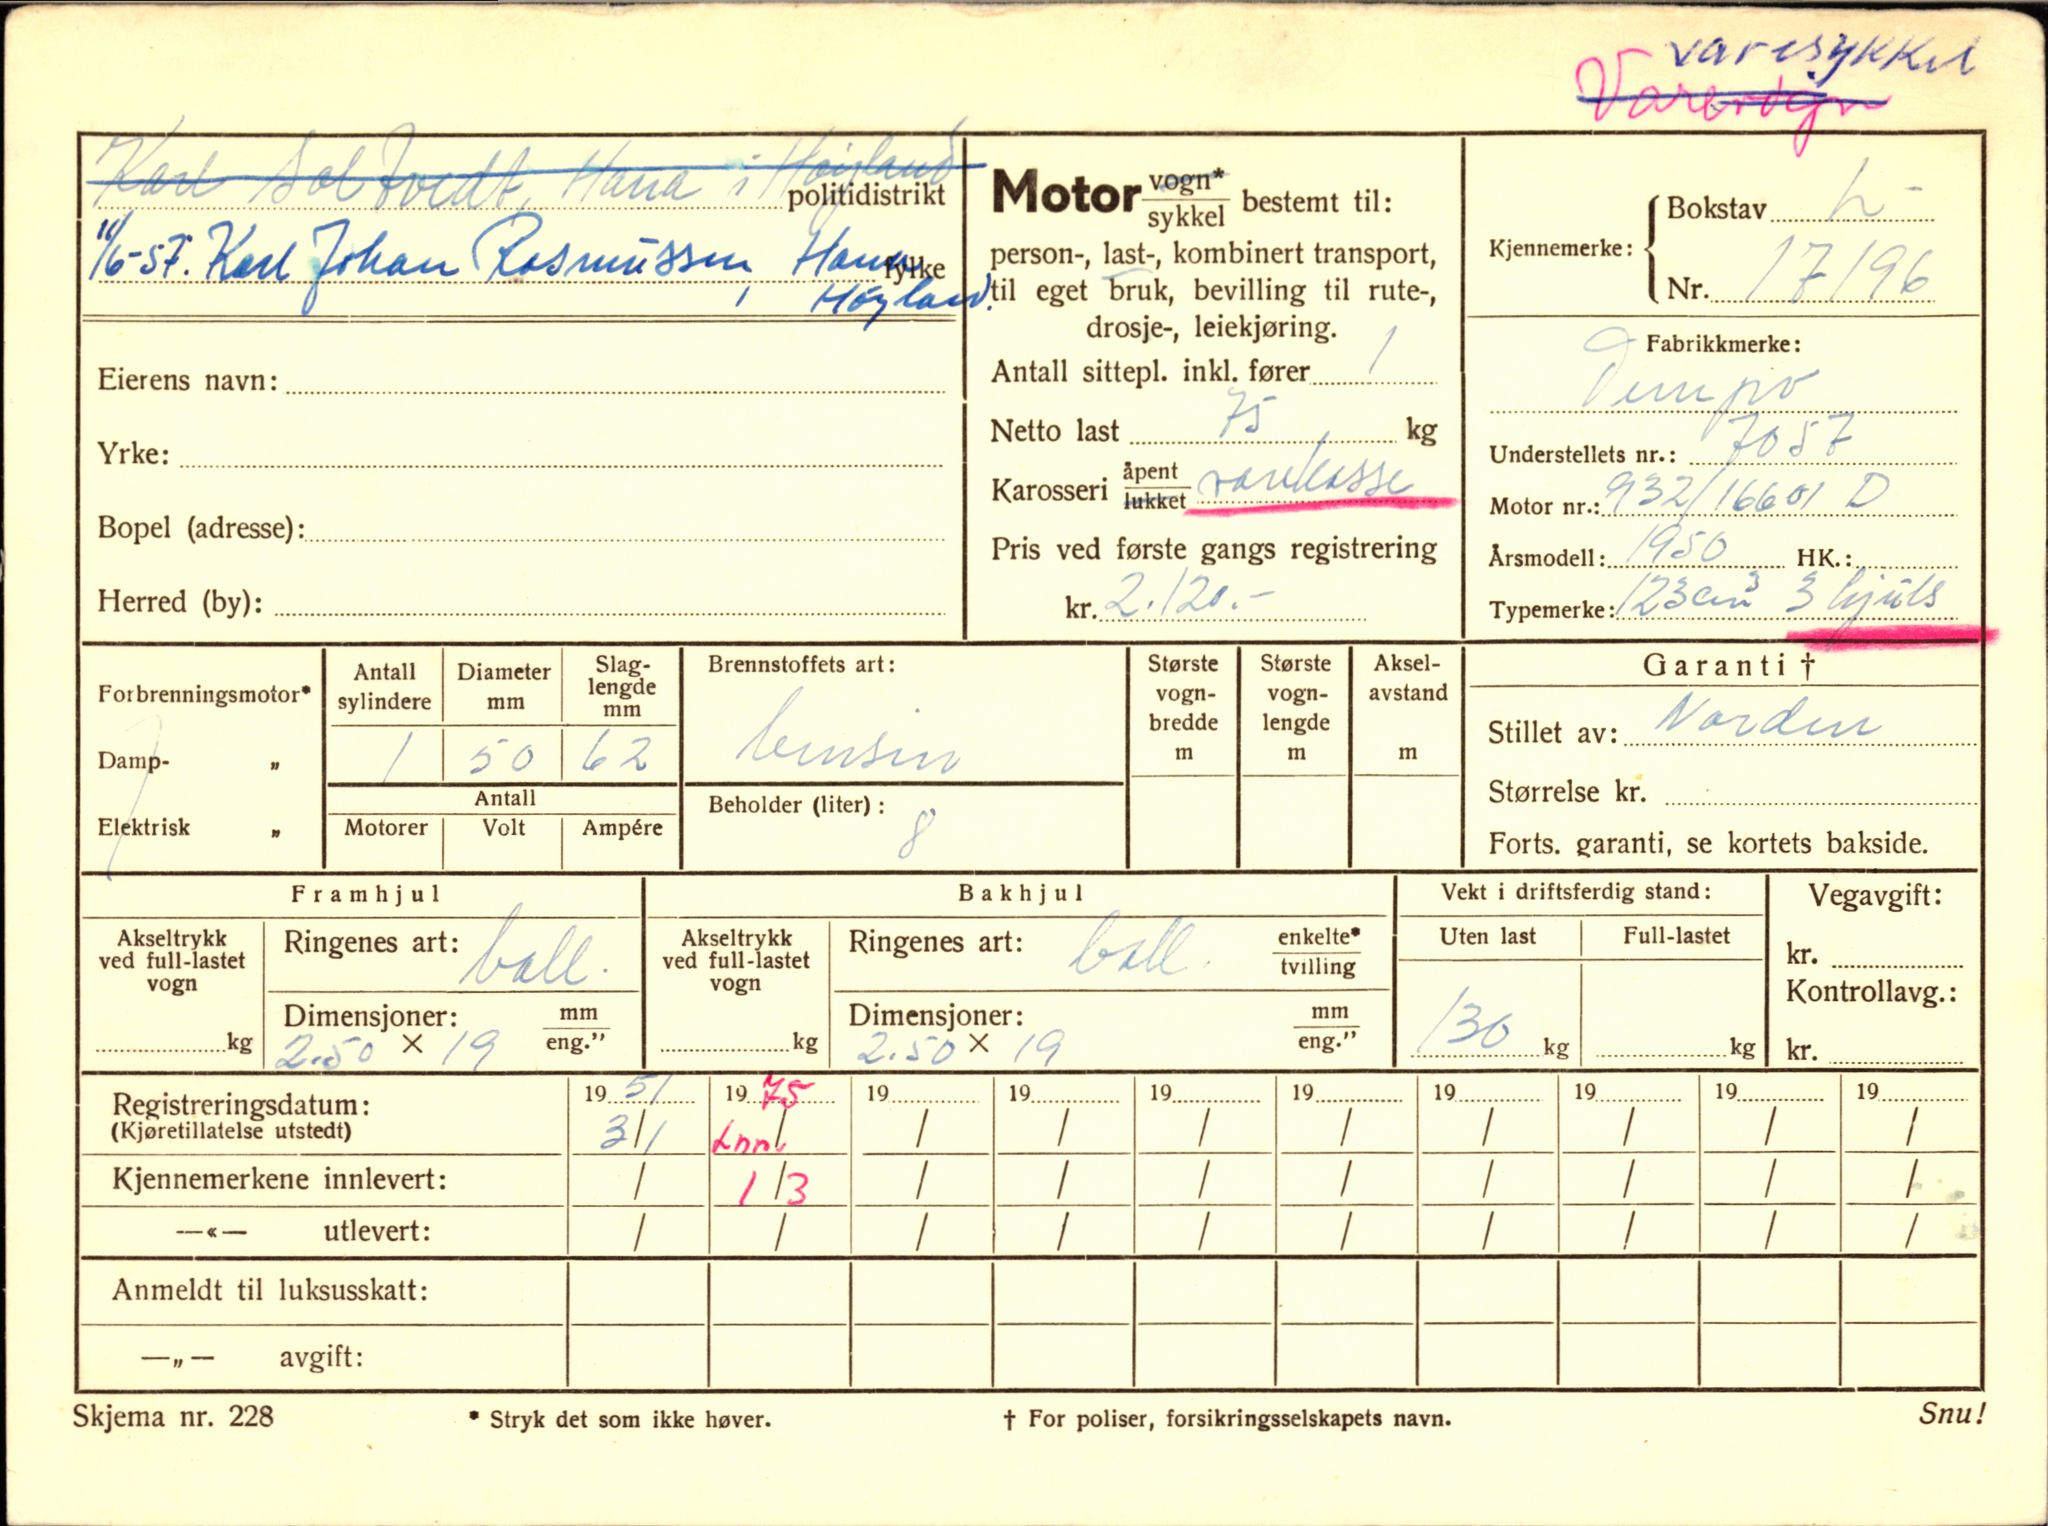 varesykkel
Varevogn
Karl Soltvedt, Hana i Høyland
politidistrikt
11/6-57. Karl Johan Rasmussen, Hana
fylke
i Høyland.
Eierens navn:
Yrke:
Bopel (adresse):
Herred (by):
Motor vogn* / sykkel bestemt til:
person-, last-, kombinert transport,
til eget bruk, bevilling til rute-,
drosje-, leiekjøring.
Antall sittepl. inkl. fører 1
Netto last 75 kg
Karosseri åpent / lukket varekasse
Pris ved første gangs registrering
kr. 2.120.-
Kjennemerke: Bokstav L-
Nr. 17196
Fabrikkmerke:
Tempo
Understellets nr.: 7057
Motor nr.: 932/16601 D
Årsmodell: 1950 HK.:
Typemerke: 123cm³ 3 hjuls
Forbrenningsmotor*
Damp- „
Elektrisk „
Antall sylindere
Diameter mm
Slag-lengde mm
1 50 62
Antall
Motorer Volt Ampére
Brennstoffets art:
bensin
Beholder (liter):
8
Største vogn-bredde m
Største vogn-lengde m
Aksel-avstand m
Garanti †
Stillet av: Norden
Størrelse kr.
Forts. garanti, se kortets bakside.
Framhjul
Akseltrykk ved full-lastet vogn
kg
Ringenes art: ball.
Dimensjoner: mm / eng."
2.50 × 19
Bakhjul
Akseltrykk ved full-lastet vogn
kg
Ringenes art: ball. enkelte* / tvilling
Dimensjoner: mm / eng."
2.50 × 19
Vekt i driftsferdig stand:
Uten last Full-lastet
130 kg kg
Vegavgift:
kr.
Kontrollavg.:
kr.
Registreringsdatum: 19 51 19 75 19 19 19 19 19 19 19 19
(Kjøretillatelse utstedt) 3/1 Inn. / / / / / / / / /
Kjennemerkene innlevert: / 1/3 / / / / / / / /
—«— utlevert: / / / / / / / / / /
Anmeldt til luksusskatt:
—„— avgift:
Skjema nr. 228
* Stryk det som ikke høver.
† For poliser, forsikringsselskapets navn.
Snu!